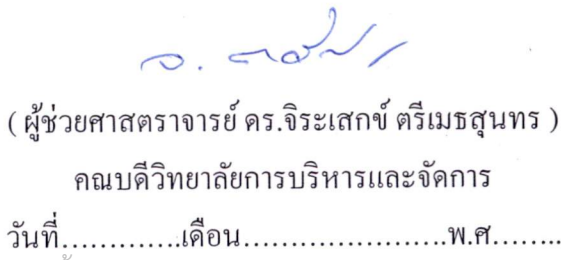 ( ผู้ช่วยศาสตราจารย์ ดร.จิระเสกข์ ตรีเมธสุนทร )
คณบดีวิทยาลัยการบริหารและจัดการ
วันที่.............เดือน......................พ.ศ........